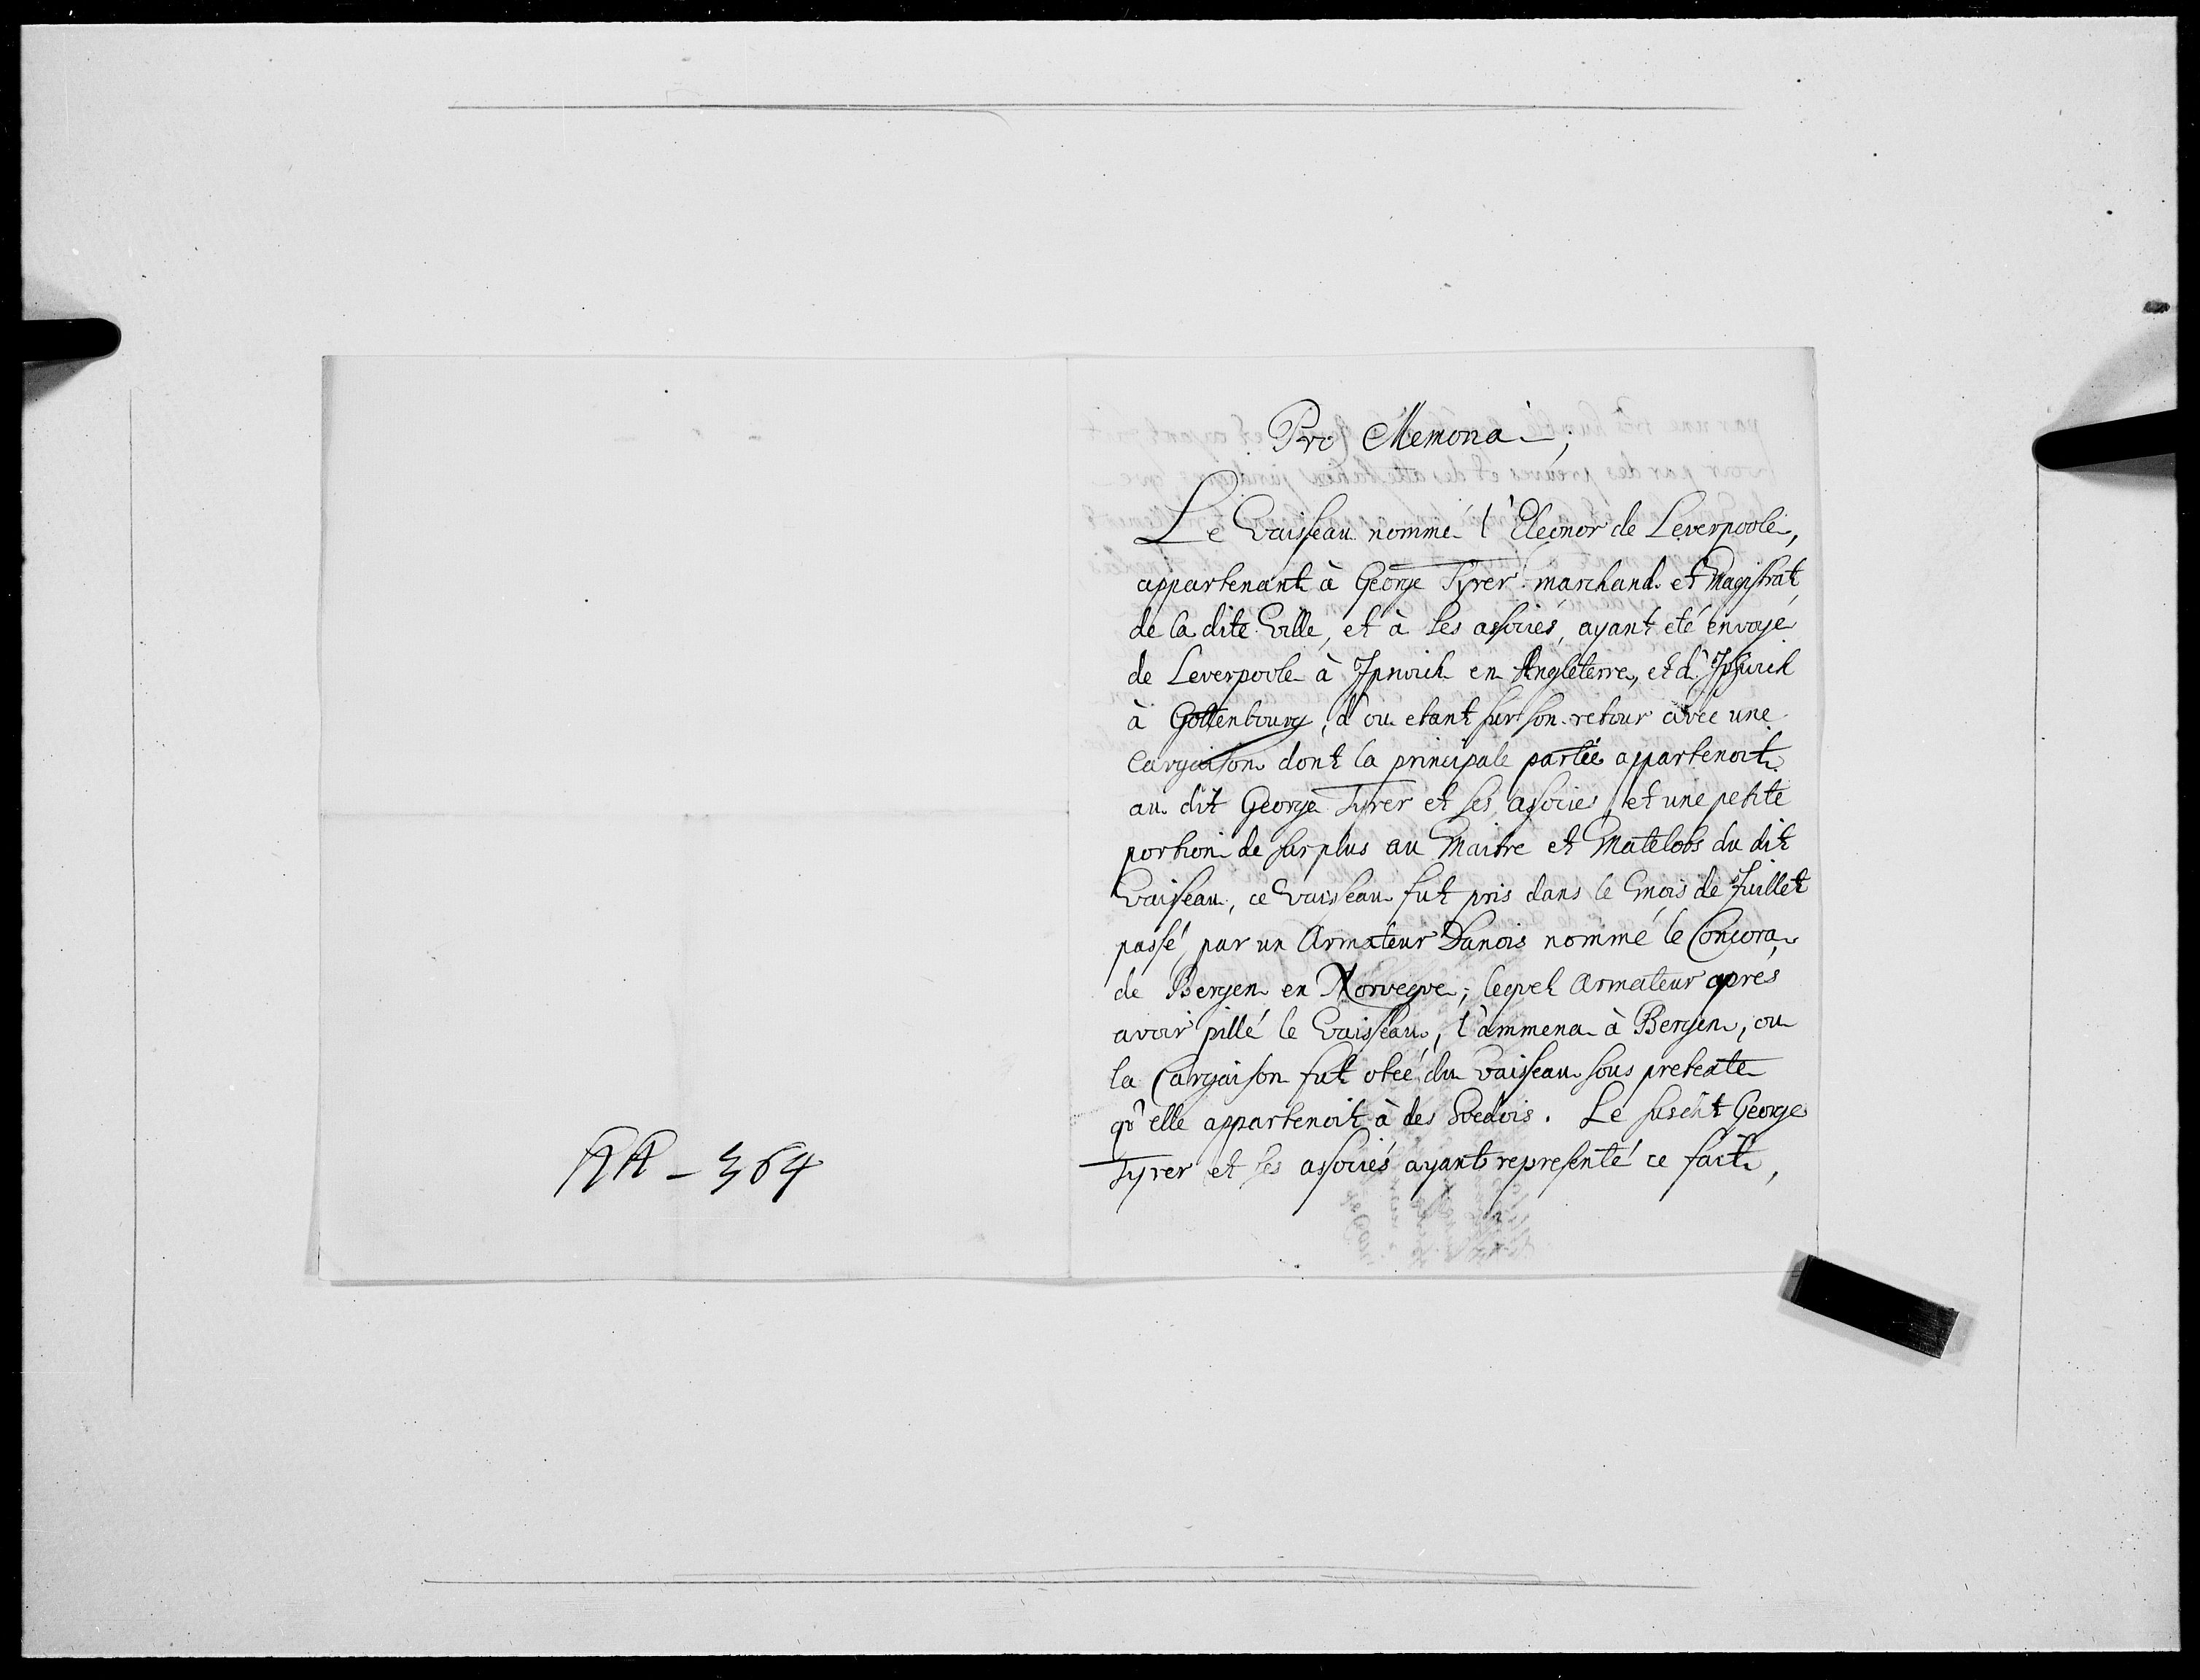 Pro Memoria,
Le Vaisseau nommé l'Eleonor de Leverpoole,
appartenant à George Tyrer marchand et Magistrat
de la dite Ville, et à ses assoiés, ayant eté envoyé
de Leverpoole à Ipswich en Angleterre, et d'Ipswich
à Gottenbourg, d'ou etant sur son retour avec une
Cargaison dont la principale partie appartenoit
au dit George Tyrer et ses assoiés, et une petite
portion de surplus au Maitre et Matelots du dit
Vaisseau, ce Vaisseau fut pris dans le mois de Juillet
passé, par un Armateur Danois nommé le
de Bergen en Norvegve; leqvel Armateur aprés
avoir pillé le Vaisseau, l'ammena à Bergen, ou
la Cargaison fut otée du Vaisseau sous pretexte
qv'elle appartenoit à des Svedois. Le susdit George
Tyrer et ses assoiés ayant representé ce fait,
RA - 364